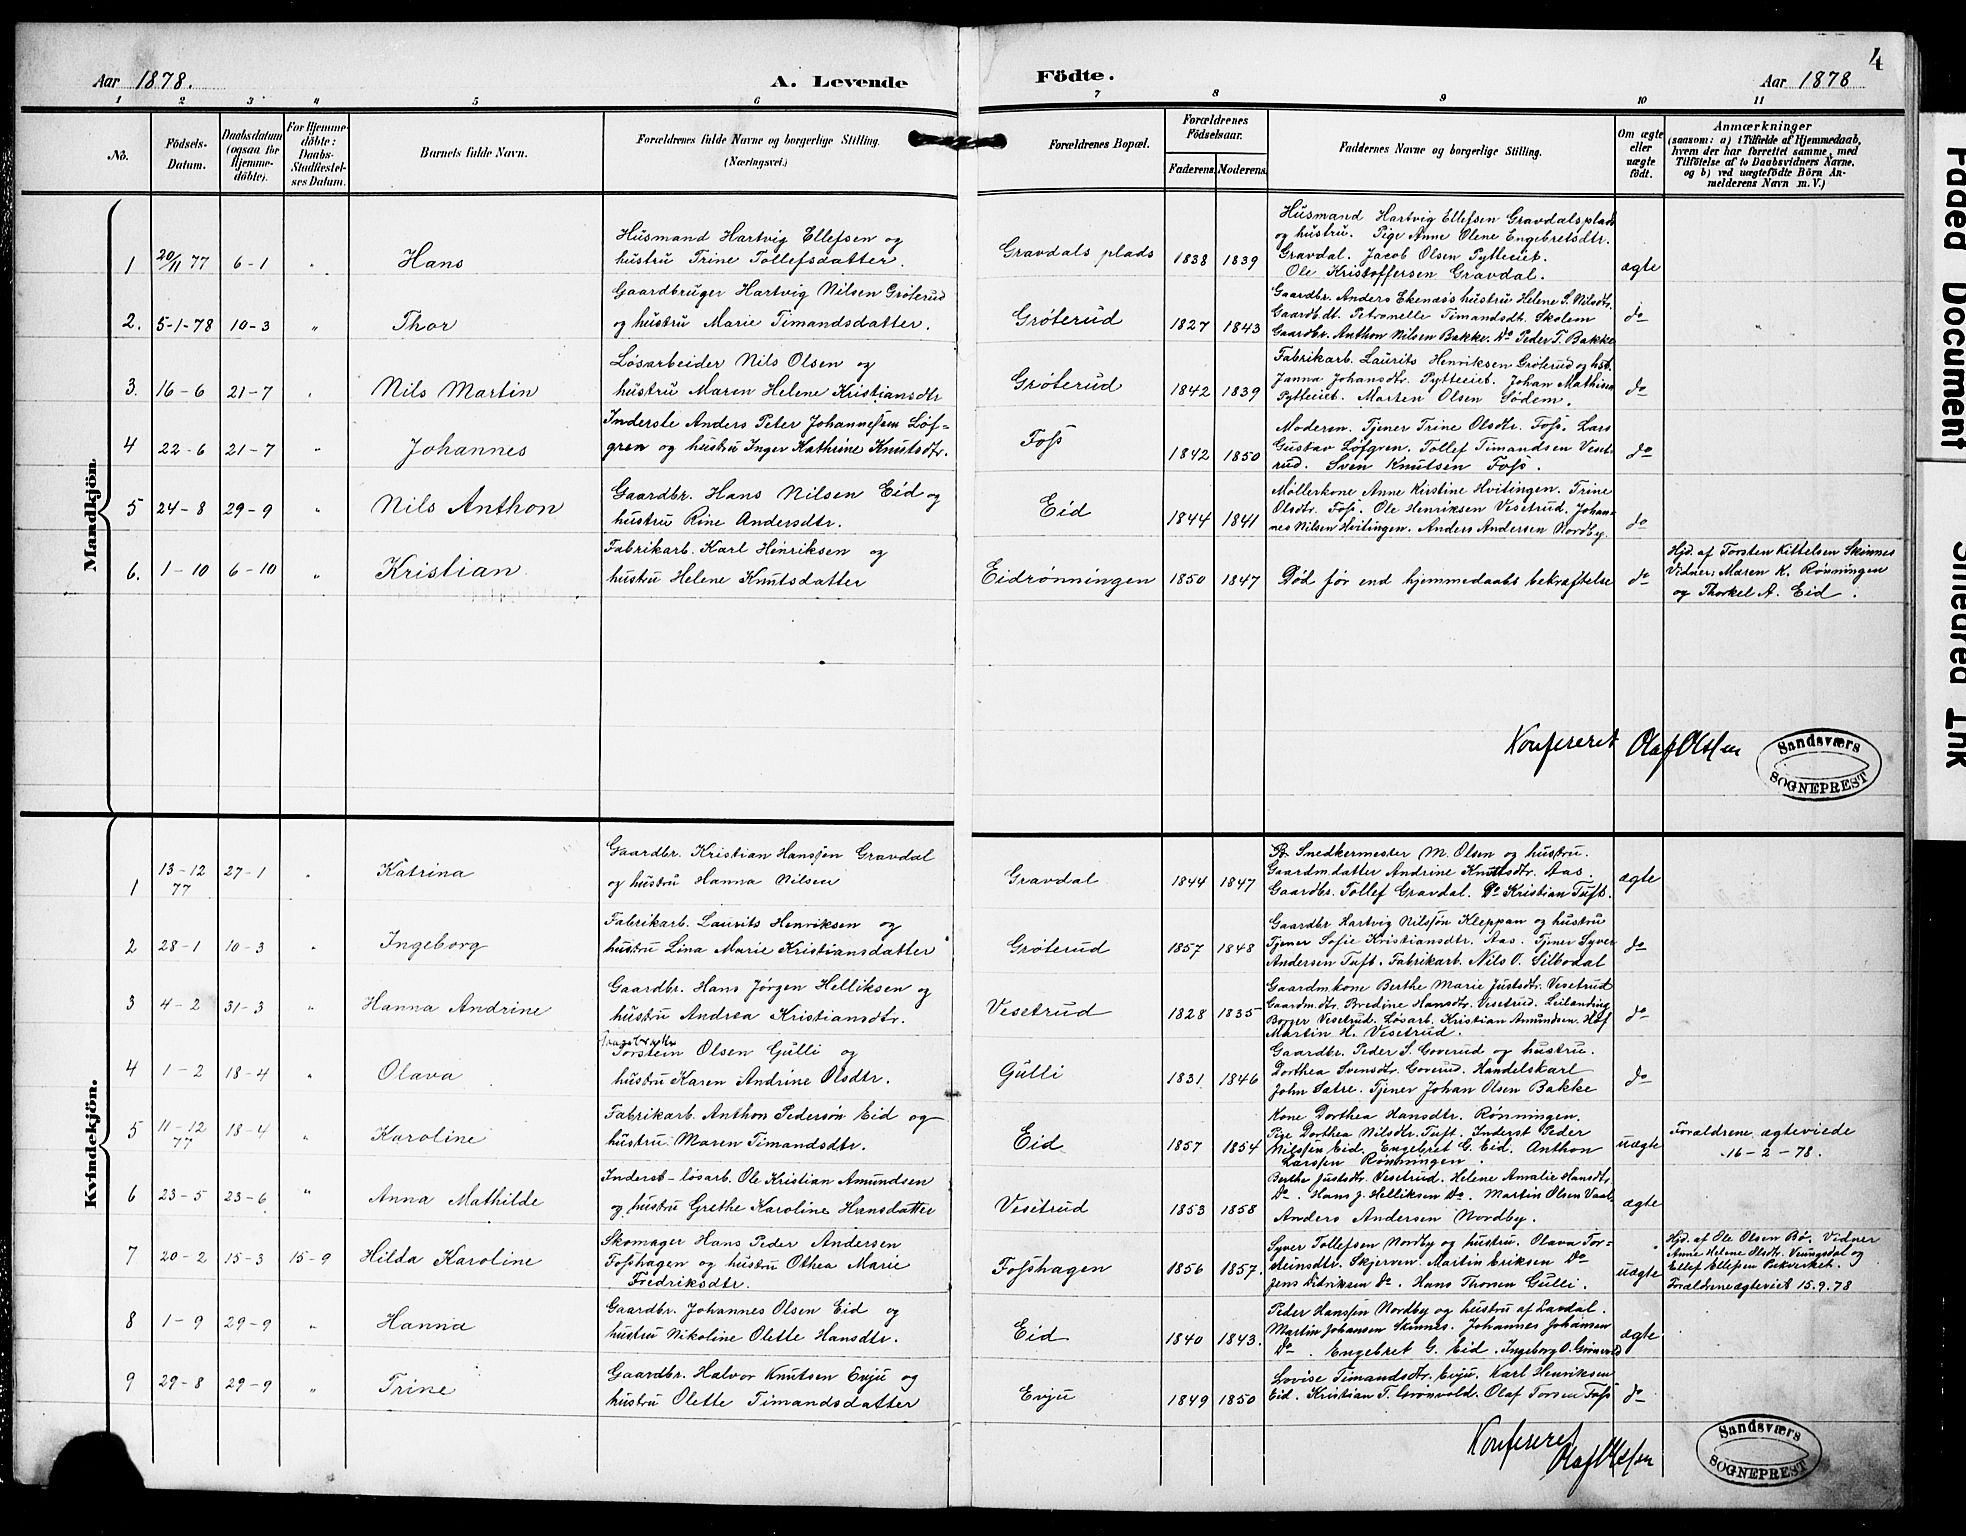 4
Aar 1878.
A. Levende
Födte.
Aar 1878
1 2 3 4 5 6 7 8 9 10 11
No.
Födsels-
Datum.
Daabsdatum
(ogsaa för
Hjemme-
döbte).
For Hjemme-
döbte:
Daabs-
Stadfæstel-
ses Datum.
Barnets fulde Navn.
Forældrenes fulde Navne og borgerlige Stilling.
(Næringsvei.)
Forældrenes Bopæl.
Forældrenes
Födselsaar.
Faderens. Moderens.
Faddernes Navne og borgerlige Stilling.
Om ægte
eller
uægte
födt.
Anmærkninger
(saasom: a) i Tilfælde af Hjemmedaab,
hvem der har forrettet samme, med
Tilföielse af to Daabsvidners Navne,
og b) ved uægtefödte Börn An-
melderens Navn m. V.)
Mandkjön.
1 20/11 77 6-1 " Hans
Husmand Hartvig Ellefsen og
hustru Trine Tollefsdatter.
Gravdals plads 1838 1839
Husmand Hartvig Ellefsen Gravdalsplads
og hustru. Pige Anne Olene Engebretsdtr.
Gravdal. Jacob Olsen Pytteeiet.
Ole Kristoffersen Gravdal.
ægte
2. 5-1-78 10-3 " Thor
Gaardbruger Hartvig Nilsen Grøterud
og hustru Marie Timandsdatter.
Grøterud 1827 1843
Gaardbr. Anders Ekenæs's hustru Helene S. Nilsdtr.
Gaardb.dt. Petronelle Timandsdt. Skolem
Gaardbr. Anthon Nilsen Bakke. Do Peder T. Bakke
do
3. 16-6 21-7 " Nils Martin
Løsarbeider Nils Olsen og
hustru Maren Helene Kristiansdtr
Grøterud 1842 1839
Fabrikarb. Laurits Henriksen Grøterud og hst.
Janna Johansdtr. Pytteeiet. Johan Mathisen
Pytteeiet. Morten Olsen Sødem.
do
4 22-6 21-7 " Johannes
Inderste Anders Peter Johannessen Løf=
gren og hustru Inger Kathrine Knutsdtr.
Foss 1842 1850
Moderen. Tjener Trine Olsdtr. Foss. Lars
Gustav Löfgren. Tollef Timandsen Veset-
rud. Sven Knutsen Foss.
do
5 24-8 29-9 " Nils Anthon
Gaardbr. Hans Nilsen Eid og
hustru Rine Andersdtr.
Eid 1844 1841
Møllerkone Anne Kirstine Hvitingen. Trine
Olsdtr. Foss. Ole Henriksen Vesetrud. Johan-
nes Nilsen Hvitingen. Anders Andersen Nordby.
do
6. 1-10 6-10 " Kristian
Fabrikarb. Karl Henriksen og
hustru Helene Knutsdatter
Eidrønningen 1850 1847
Død før end hjemmedaabs bekræftelse
do
Hjd. af Torsten Kittelsen Skinnes
Vidner: Maren K. Rønningen
og Thorkel A. Eid.
Konfereret Olaf Olsen
Sandsværs
SOGNEPREST
Kvindekjön.
1 13-12 77 27-1 " Katrina
Gaardbr. Kristian Hanssen Gravdal
og hustru Hanna Nilsen
Gravdal 1844 1847
Snedkermester M. Olsen og hustru.
Gaardm.datter Andrine Knutsdtr. Aas.
Gaardbr. Tollef Gravdal. Do Kristian Tuft.
ægte
2 28-1 10-3 " Ingeborg
Fabrikarb. Laurits Henriksen og
hustru Lina Marie Kristiansdatter
Grøterud 1857 1848
Gaardbr Hartvig Nilssøn Kleppan og hustru
Tjener Sofie Kristiansdtr. Aas. Tjener Syver
Andersen Tuft. Fabrikarb. Nils O. Silbodal
do
3 4-2 31-3 " Hanna Andrine
Gaardbr. Hans Jørgen Helliksen og
hustru Andrea Kristiansdtr.
Vesetrud 1828 1835
Gaardmkone Berthe Marie Justsdtr. Vesetrud
Gaardm.dtr. Bredine Hansdtr. Vesetrud. Leilænding
Borger Vesetrud. Løsarb. Kristian Amundsen Hof
Martin H. Vesetrud.
do
4 1-2 18-4 " Olava
Torstein Olsen Gulli og
hustru Karen Andrine Olsdtr.
Gulli 1831 1846
Gaardbr. Peder S. Goverud og hustru.
Dorthea Svensdtr. Goverud. Handelskarl
John Sætre. Tjener Johan Olsen Bakke
do
5 11-12 77 18-4 " Karoline
Fabrikarb. Anthon Pedersøn Eid og
hustru Maren Timandsdtr.
Eid 1857 1854
Kone Dorthea Hansdtr. Rønningen.
Pige Dorthea Nilsdtr. Tuft. Inderst Peder
Nilssen Eid. Engebret G. Eid. Anthon
Larssen Rønningen.
uægte
Forældrene ægteviede
16-2-78.
6 23-5 23-6 " Anna Mathilde
Inderst-løsarb. Ole Kristian Amundsen
og hustru Grethe Karoline Hansdatter
Vesetrud 1853 1858
Berthe Justsdtr. Vesetrud. Helene Amalie Hansdtr.
Do. Hans J. Helliksen Do. Martin Olsen Vaal.
Anders Andersen Nordby.
ægte
7 20-2 15-3 15-9 Hilda Karoline
Skomager Hans Peder Andersen
Fosshagen og hustru Othea Marie
Fredriksdtr.
Fosshagen 1856 1857.
Syver Tollefsen Nordby og hustru. Olava Tor=
steinsdtr. Skjerven. Martin Eriksen Do
Jens Didriksen do. Hans Thorsen Gulli.
uægte
Hjd. af Ole Olsen Bø. Vidner
Anne Helene Olsdtr. Venngsdal og
Ellef Ellefsen Pikverket.
Forældrene ægteviet 15.9.78
8 1-9 29-9 " Hanna
Gaardbr. Johannes Olsen Eid og
hustru Nikoline Olette Hansdtr.
Eid 1840 1843.
Peder Hanssen Nordby og hustru af Lavdal.
Martin Johansen Skinnes. Johannes Johansen
Do. Engebret G. Eid. Ingeborg O. Grønvold
ægte
9 29-8 29-9 " Trine
Gaardbr. Halvor Knutsen Evju og
hustru Olette Timandsdatter
Evju 1849 1850
Lovise Timandsdtr. Evju. Karl Henriksen
Eid. Kristian T. Grønvold. Olaf Torsen Foss
do
Konfereret
Olaf Olsen
Sandsværs
SOGNEPREST
Faded Document
Smedred Ink